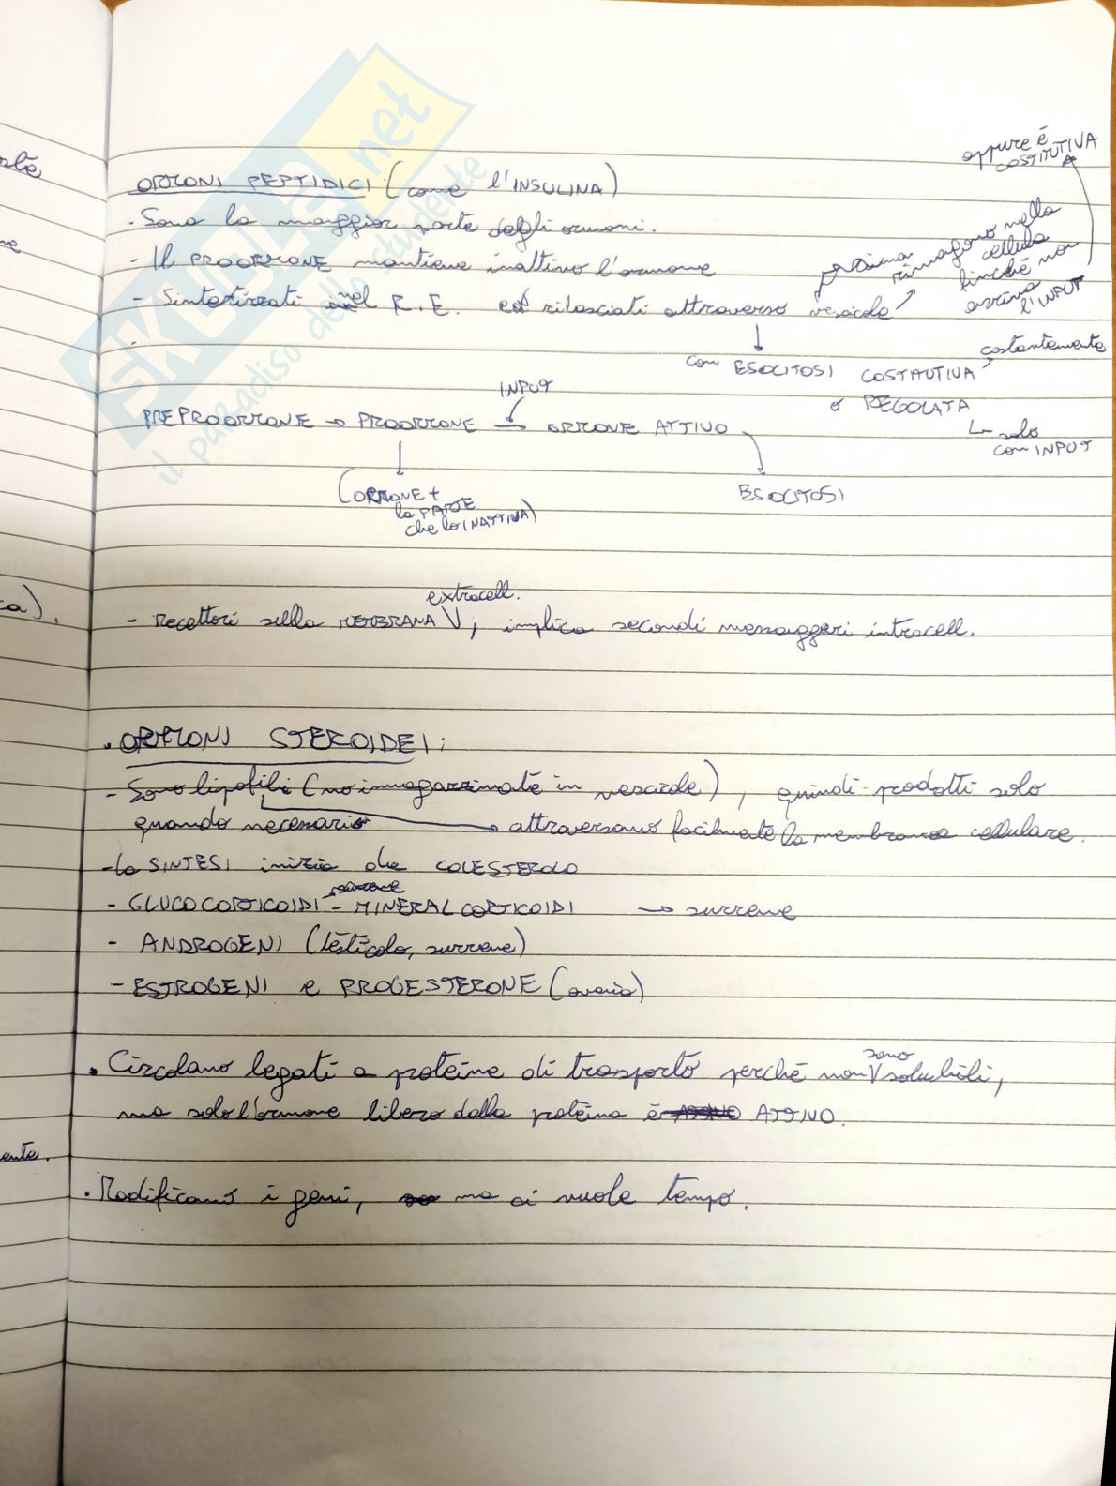 ORMONI PEPTIDICI (come l'INSULINA)
- Sono la maggior parte degli ormoni.
- Il PROORMONE mantiene inattivo l'ormone
- Sintetizzati nel R.E. ed rilasciati attraverso vescicole
prima rimangono nella
cellula
finché non
arriva
l'INPUT
oppure è
COSTITUTIVA
con ESOCITOSI COSTITUTIVA
costantemente
o REGOLATA
solo
con INPUT
INPUT
PREPROORMONE → PROORMONE → ORMONE ATTIVO
(ORMONE +
la PARTE
che lo INATTIVA)
ESOCITOSI
extracell.
- Recettori sulla MEMBRANA V, implica secondi messaggeri intracell.
. ORMONI STEROIDEI:
- Sono lipofili (no immagazzinate in vescicole), quindi prodotti solo
quando necessario → attraversano facilmente la membrana cellulare.
- la SINTESI inizia da COLESTEROLO
- GLUCOCORTICOIDI - MINERALCORTICOIDI → surrene
- ANDROGENI (testicolo, surrene)
- ESTROGENI e PROGESTERONE (ovaio)
sono
. Circolano legati a proteine di trasporto perché non V solubili,
ma solo l'ormone libero dalla proteina è ATTIVO.
. Modificano i geni, ma ci vuole tempo.
SKUOLA.net
il paradiso dello studente
ca).